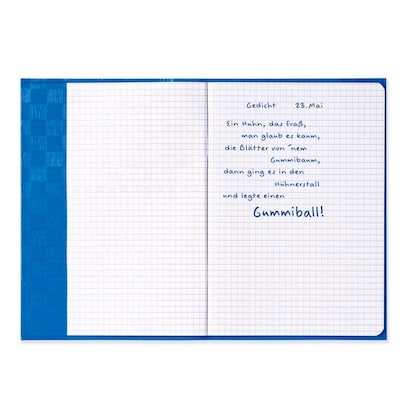 Gedicht 23. Mai
Ein Huhn, das Fraß,
man glaub es kaum,
die Blätter von ´nem
Gummibaum,
dann ging es in den
Hühnerstall
und legte einen
Gummiball!